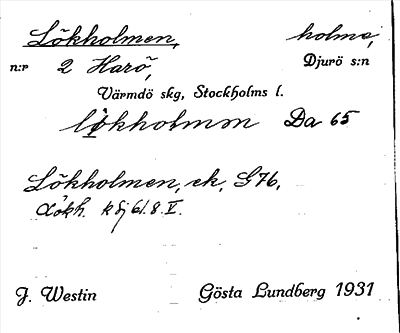 Lökholmen, holme,
n:r 2 Harö, Djurö s:n
Värmdö skg, Stockholms l.
lökholmen Da 65
Lökholmen, ek, G76,
Lökh. k 61.8.V.
J. Westin Gösta Lundberg 1931